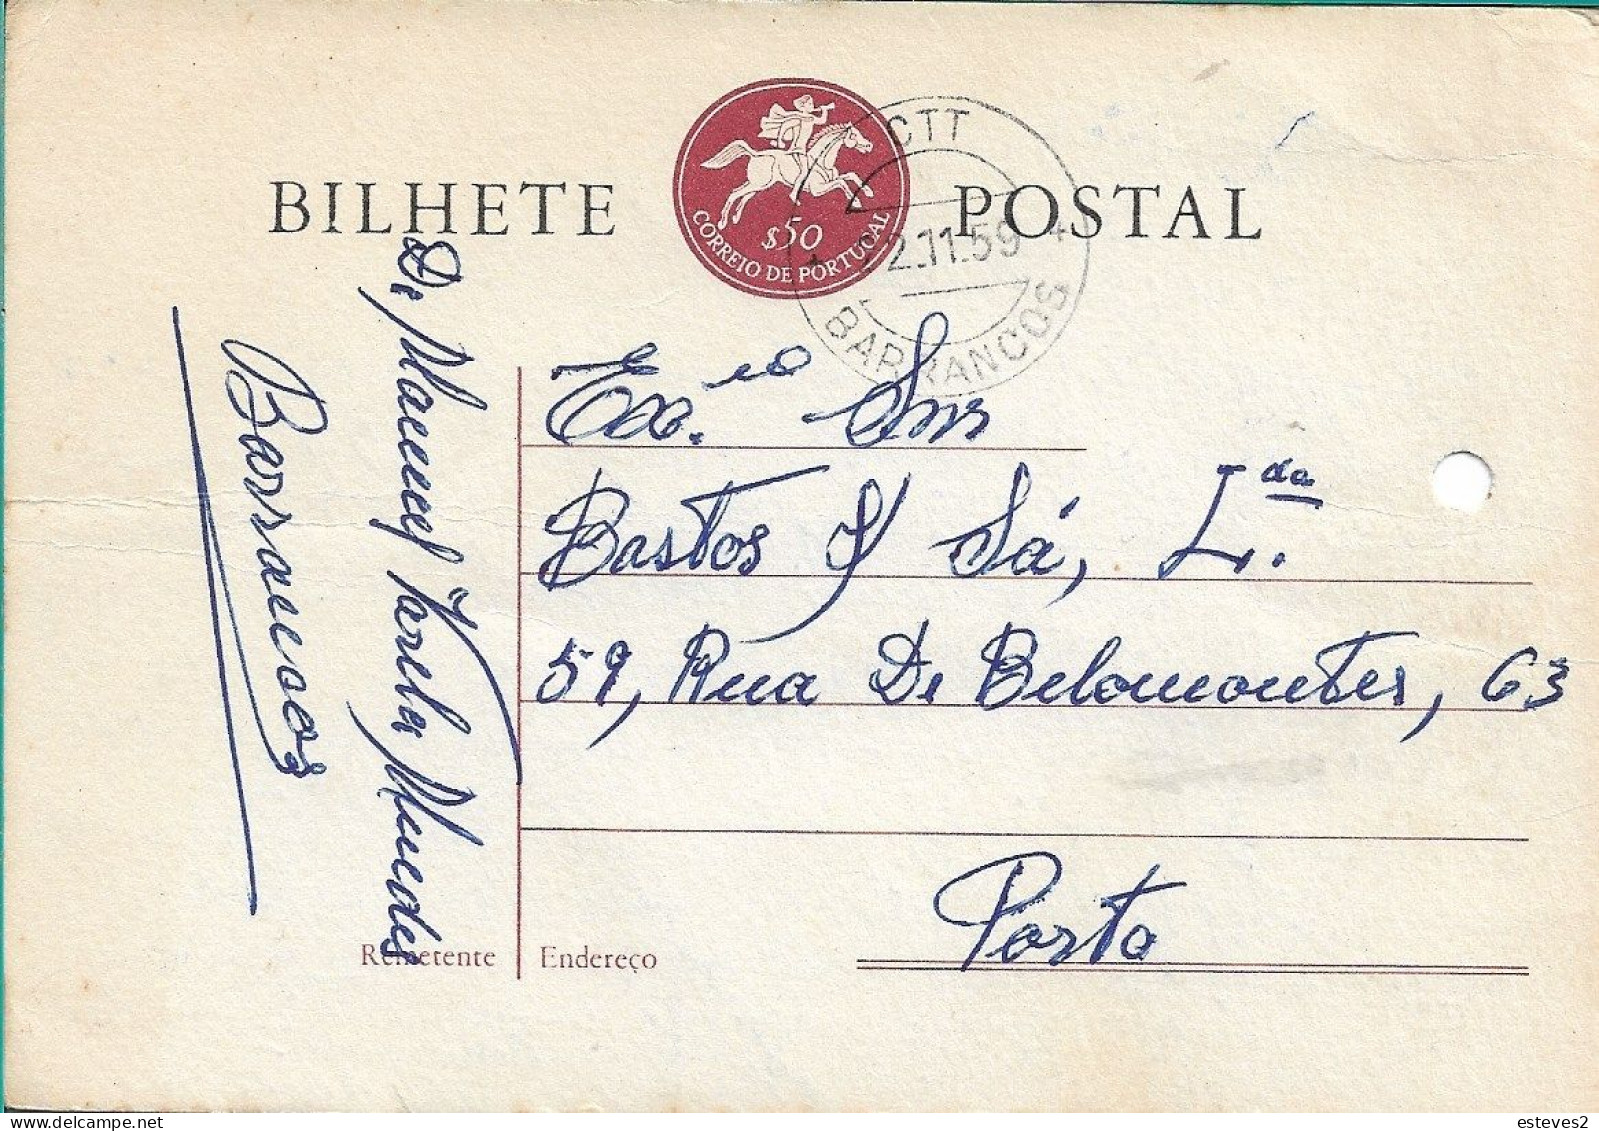 BILHETE POSTAL
$50
CORREIO DE PORTUGAL
CTT
2.11.59
BARRANCOS
Exᵐᵒˢ. Snrs
Bastos & Sá, L.da
59, Rua De Belomonte, 63
Porto
De Manuel Varela Mendes
Barrancos
Remetente
Endereço
esteves2